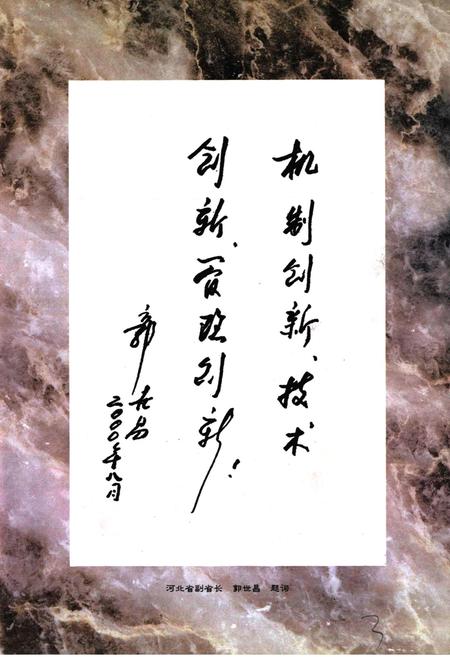 机制创新、技术
创新、管理创新！
郭世昌
二000年八月
河北省副省长 郭世昌 题词
3